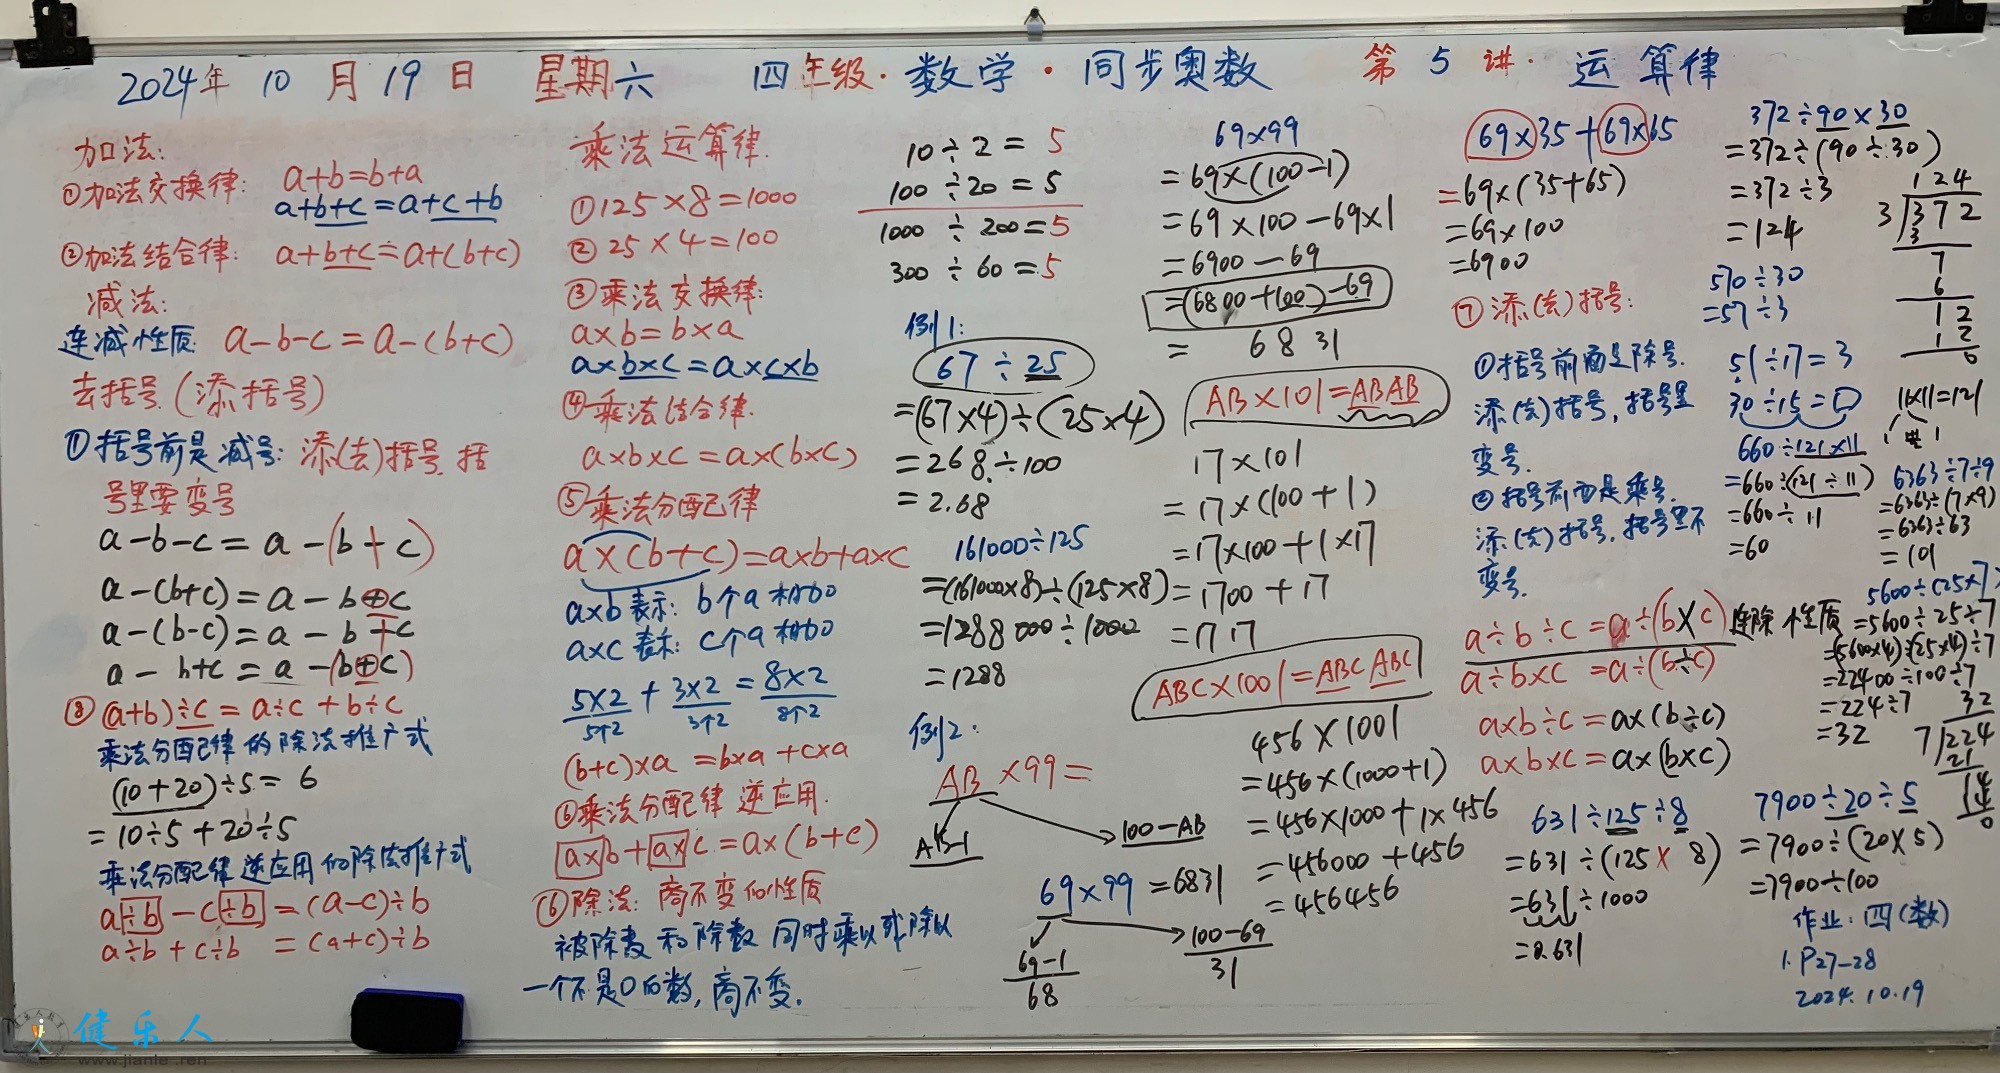 2024年 10 月 19 日 星期六 四年级·数学·同步奥数 第 5 讲· 运算律
加法:
①加法交换律: a+b=b+a
a+b+c=a+c+b
②加法结合律: a+b+c=a+(b+c)
减法:
连减性质: a-b-c=a-(b+c)
去括号(添括号)
①括号前是减号: 添(去)括号, 括
号里要变号
a-b-c=a-(b+c)
a-(b+c)=a-b⊕c
a-(b-c)=a-b+c
a-b+c=a-(b⊕c)
⑧(a+b)÷c=a÷c+b÷c
乘法分配律的除法推广式
(10+20)÷5=6
=10÷5+20÷5
乘法分配律逆应用的除法推广式
a÷b-c÷b=(a-c)÷b
a÷b+c÷b=(a+c)÷b
乘法运算律.
①125×8=1000
②25×4=100
③乘法交换律:
a×b=b×a
a×b×c=a×c×b
④乘法结合律.
a×b×c=a×(b×c)
⑤乘法分配律
a×(b+c)=a×b+a×c
a×b表示: b个a相加
a×c表示: c个a相加
5×2+3×2=8×2
5个2 3个2 8个2
(b+c)×a=b×a+c×a
⑥乘法分配律逆应用.
a×b+a×c=a×(b+c)
⑥除法: 商不变的性质
被除数和除数同时乘以或除以
一个不是0的数, 商不变.
10÷2=5
100÷20=5
1000÷200=5
300÷60=5
例1:
67÷25
=(67×4)÷(25×4)
=268÷100
=2.68
161000÷125
=(161000×8)÷(125×8)
=1288000÷1000
=1288
例2:
AB×99=
AB-1 100-AB
69×99=6831
69-1 100-69
68 31
69×99
=69×(100-1)
=69×100-69×1
=6900-69
=(6800+100)-69
= 6831
AB×101=ABAB
17×101
=17×(100+1)
=17×100+1×17
=1700+17
=1717
ABC×1001=ABCABC
456×1001
=456×(1000+1)
=456×1000+1×456
=456000+456
=456456
69×35+69×65
=69×(35+65)
=69×100
=6900
⑦添(去)括号:
①括号前面是除号.
添(去)括号, 括号里
变号.
②括号前面是乘号.
添(去)括号, 括号里不
变号.
a÷b÷c=a÷(b×c) 连除性质
a÷b×c=a÷(b÷c)
a×b÷c=a×(b÷c)
a×b×c=a×(b×c)
631÷125÷8
=631÷(125×8)
=631÷1000
=0.631
372÷90×30
=372÷(90÷30)
=372÷3
=124
124
3 372
3
7
6
12
12
0
570÷30
=57÷3
51÷17=3
30÷15=
11×11=121
660÷121×11
=660÷(121÷11)
=660÷11
=60
6363÷7÷9
=6363÷(7×9)
=6363÷63
=101
5600÷(25×7)
=5600÷25÷7
=(5600×4)÷(25×4)÷7
=22400÷100÷7
=224÷7
=32
32
7 224
21
14
14
0
7900÷20÷5
=7900÷(20×5)
=7900÷100
作业: 四(数)
1. P27-28
2024.10.19
健乐人
www.jianle.ren